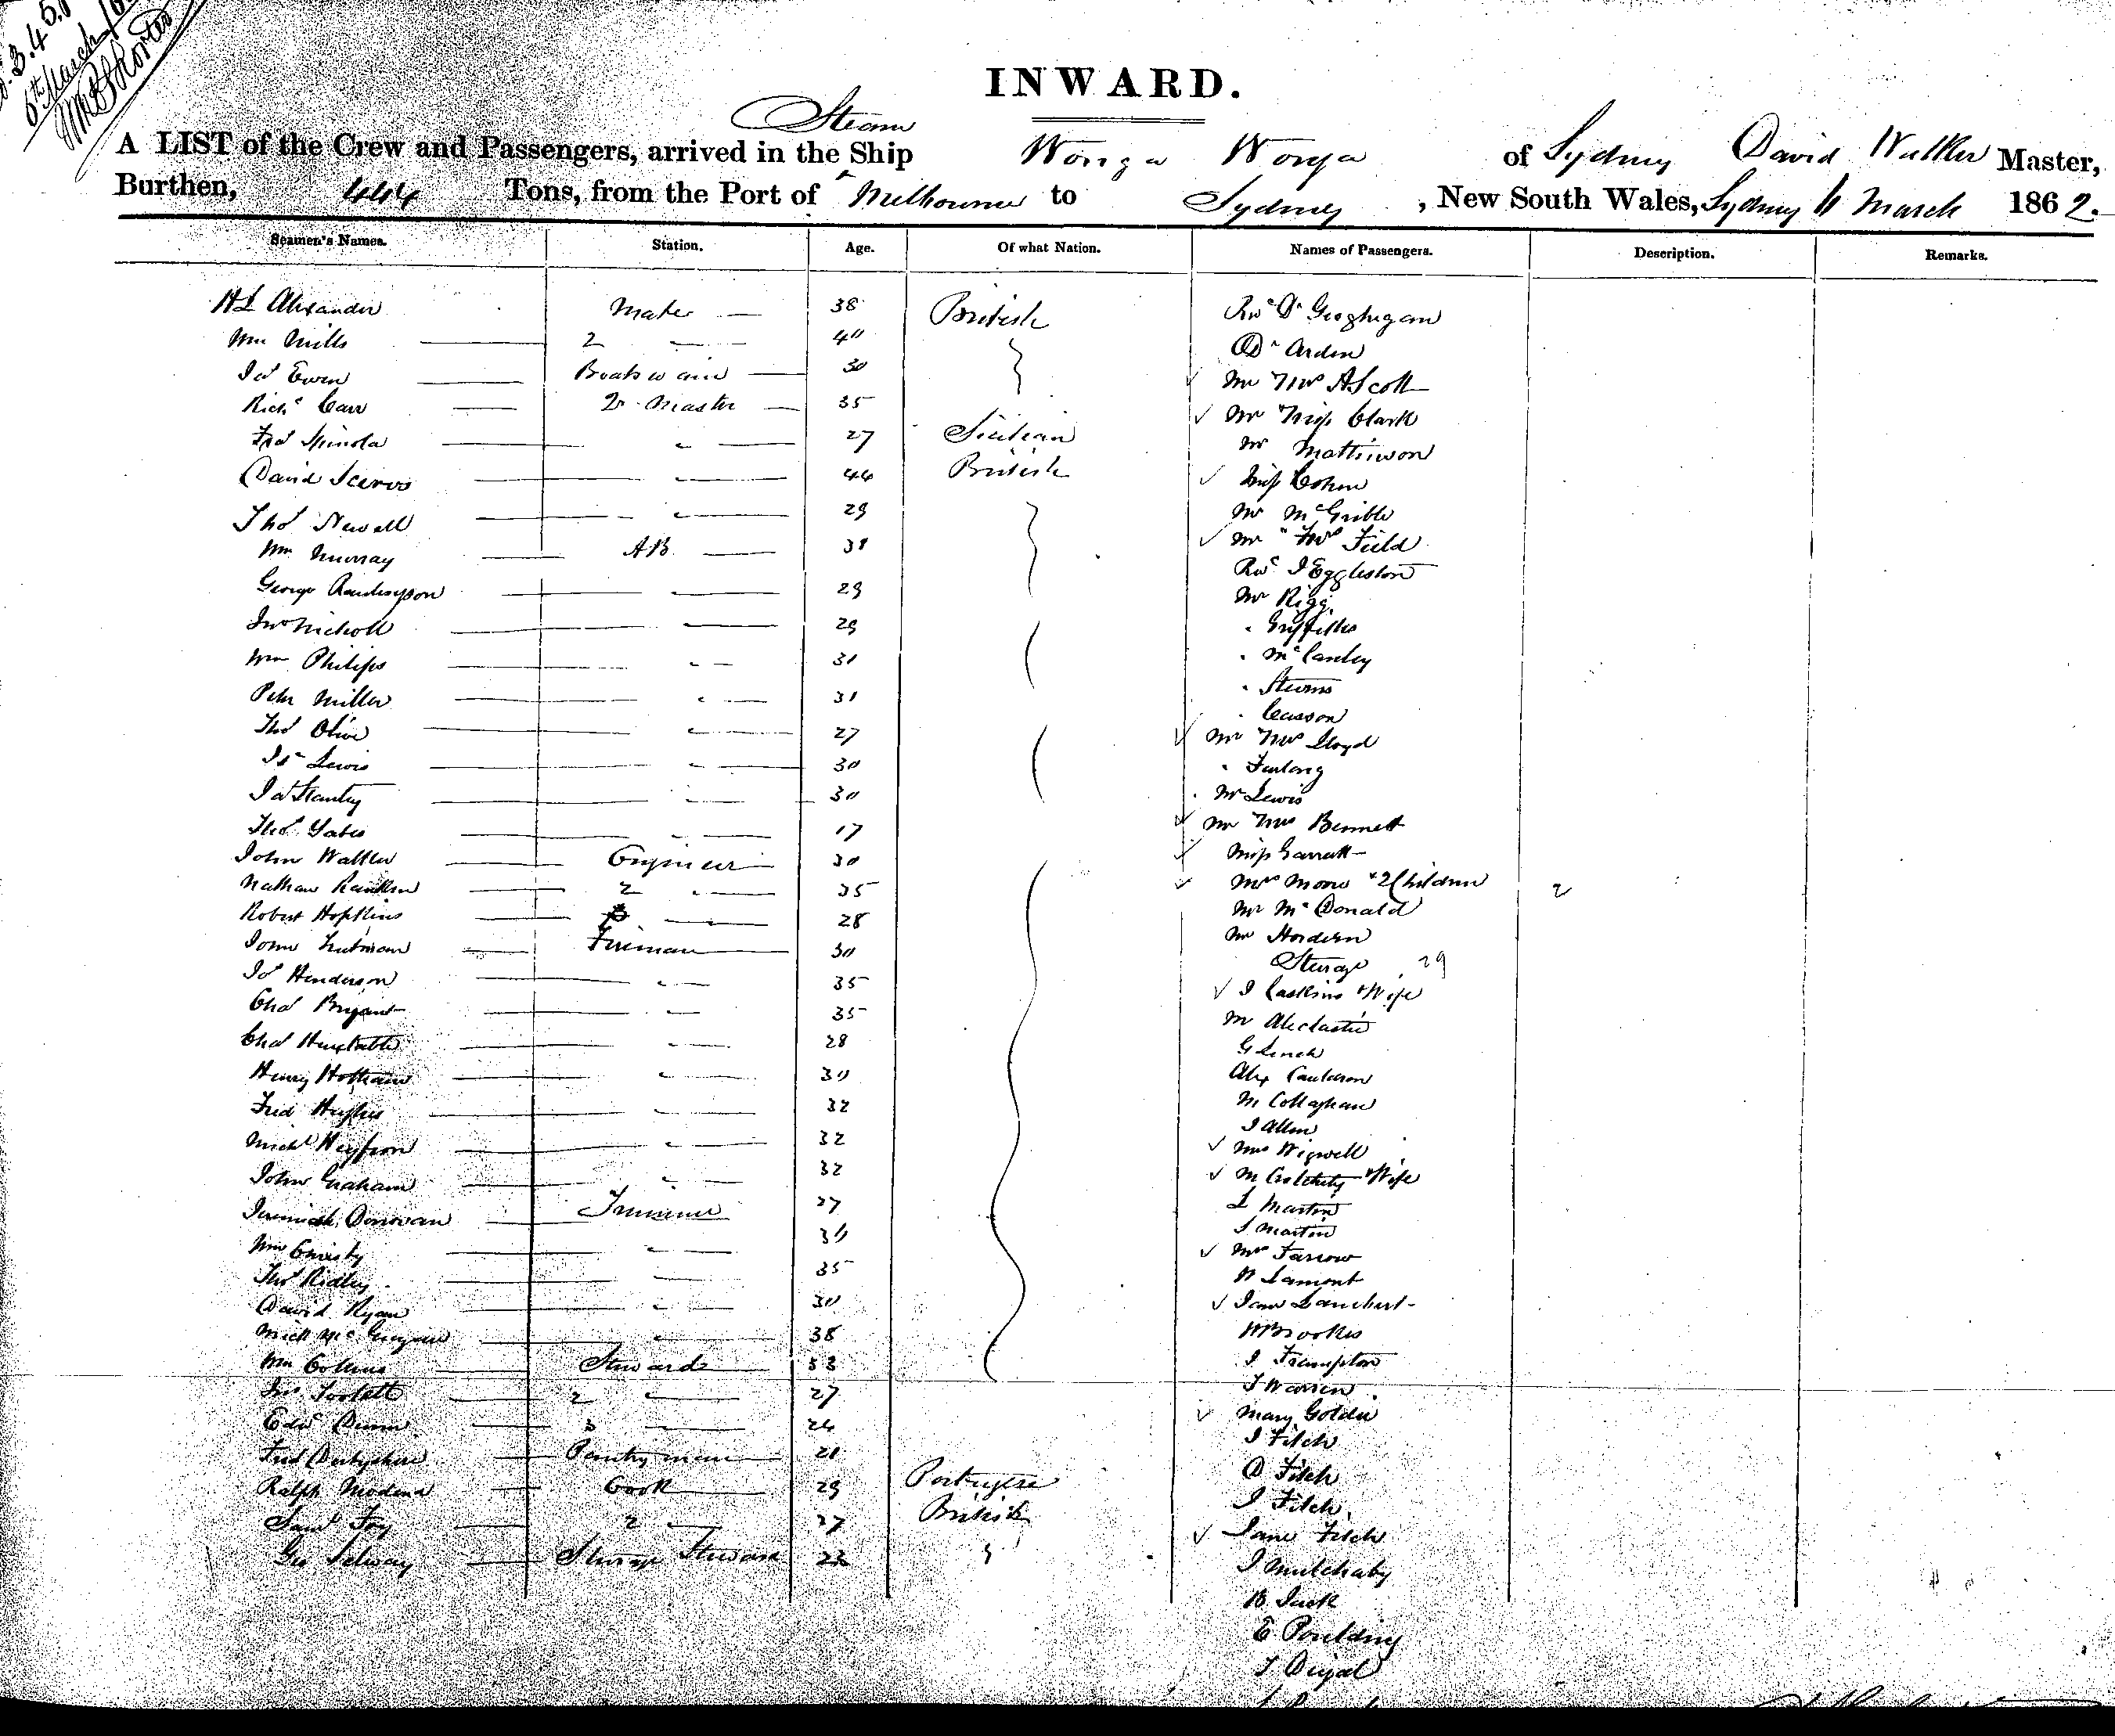 6th March
INWARD.
Steam
A LIST of the Crew and Passengers, arrived in the Ship Wonga Wonga of Sydney David Walker Master,
Burthen, 444 Tons, from the Port of Melbourne to Sydney, New South Wales, Sydney 6 March 1862.
Seamen's Names. Station. Age. Of what Nation. Names of Passengers. Description. Remarks.
H L Alexander Mate 38 British Revd Dr Geoghegan
Wm Mills 2 " 40 Dr Arden
Jas Ewen Boatswain 30 Mr Mrs A Scott
Richd Carr Qr Master 35 Mr Miss Clark
Fras Spinola " 27 Sicilian Mr Mathewson
David " 44 British Miss Cohen
Thos Newell " 29 Mr McGribble
Wm Murray AB 31 Mr " Mrs Field
George " 29 Revd J Eggleston
Jno Nicholl " 29 Mr Rigg
Wm Philips " 31 " Griffiths
Peter Miller " 31 " McCauley
Thos Olive " 27 " Stevens
Js Lewis " 30 " Casson
Jas " 30 Mr Mrs Lloyd
Thos Yates " 17 " Furlong
John Walker Engineer 30 Mr Lewis
Nathan Rankin 2 " 35 Mr Mrs Bennett
Robert Hopkins 3 28 Miss Garratt
Fireman 30 Mrs Moore & 2 Children 2
Jos Henderson " 35 Mr McDonald
Chas Bryant " 35 Mr Hordern
Chas Huxtable " 28 Steerage 29
Henry Hotham " 30 J Caskins & Wife
Fred Hughes " 32 M
Michl " 32 G Linch
John Graham " 32 Alex Cauldron
Jeremiah Donovan Trimmer 27 M Collaghan
Wm Christy " 30 J Allen
Thos Ridley " 35 Mrs Wigwell
David Ryan " 30 M & Wife
Mick " 38 L Martin
Wm Collins Steward 33 J Martin
Jno 2 " 27 Mrs Farrow
Edwd Dunn 3 " 24 Lamont
Fred Derbyshire Pantryman 21 Jane Lambert
Ralph Modena Cook 29 Portugese W Brookes
Saml Foy 2 " 27 British J Frampton
Geo Selway Steerage Steward 22 " J Warren
Mary Golder
J Fitch
D Fitch
J Fitch
Jane Fitch
J Mulchaby
B Tuck
E Poulding